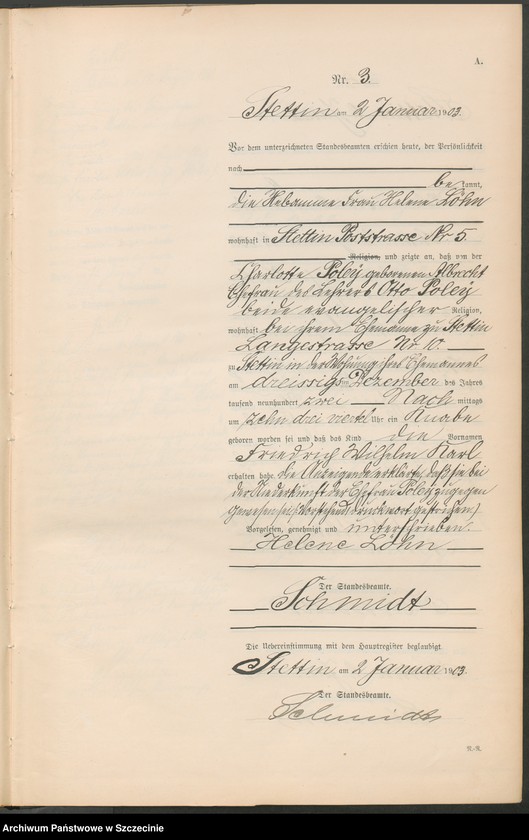 A.
Nr. 3.
Stettin am 2 Januar 1903.
Vor dem unterzeichneten Standesbeamten erschien heute, der Persönlichkeit
nach
be kannt,
die Hebamme Frau Helene Löhn
wohnhaft in Stettin Poststrasse Nr 5.
Religion, und zeigte an, daß von der
Charlotte Poley geborenen Albrecht
Ehefrau des Lehrers Otto Poley
beide evangelischer Religion,
wohnhaft bei ihrem Ehemanne zu Stettin
Langestrasse Nr 10
zu Stettin in der Wohnung ihres Ehemannes
am dreissigsten Dezember des Jahres
tausend neunhundert zwei Nach mittags
um zehn drei viertel Uhr ein Knabe
geboren worden sei und daß das Kind die Vornamen
Friedrich Wilhelm Karl
erhalten habe. Die Anzeigende erklärte, daß sie bei
der Niederkunft der Ehefrau Poley zugegen
gewesen sei. (Vorstehend 1 Druckwort gestrichen.)
Vorgelesen, genehmigt und unterschrieben.
Helene Löhn
Der Standesbeamte.
Schmidt
Die Uebereinstimmung mit dem Hauptregister beglaubigt.
Stettin am 2 Januar 1903.
Der Standesbeamte.
Schmidt
Archiwum Państwowe w Szczecinie